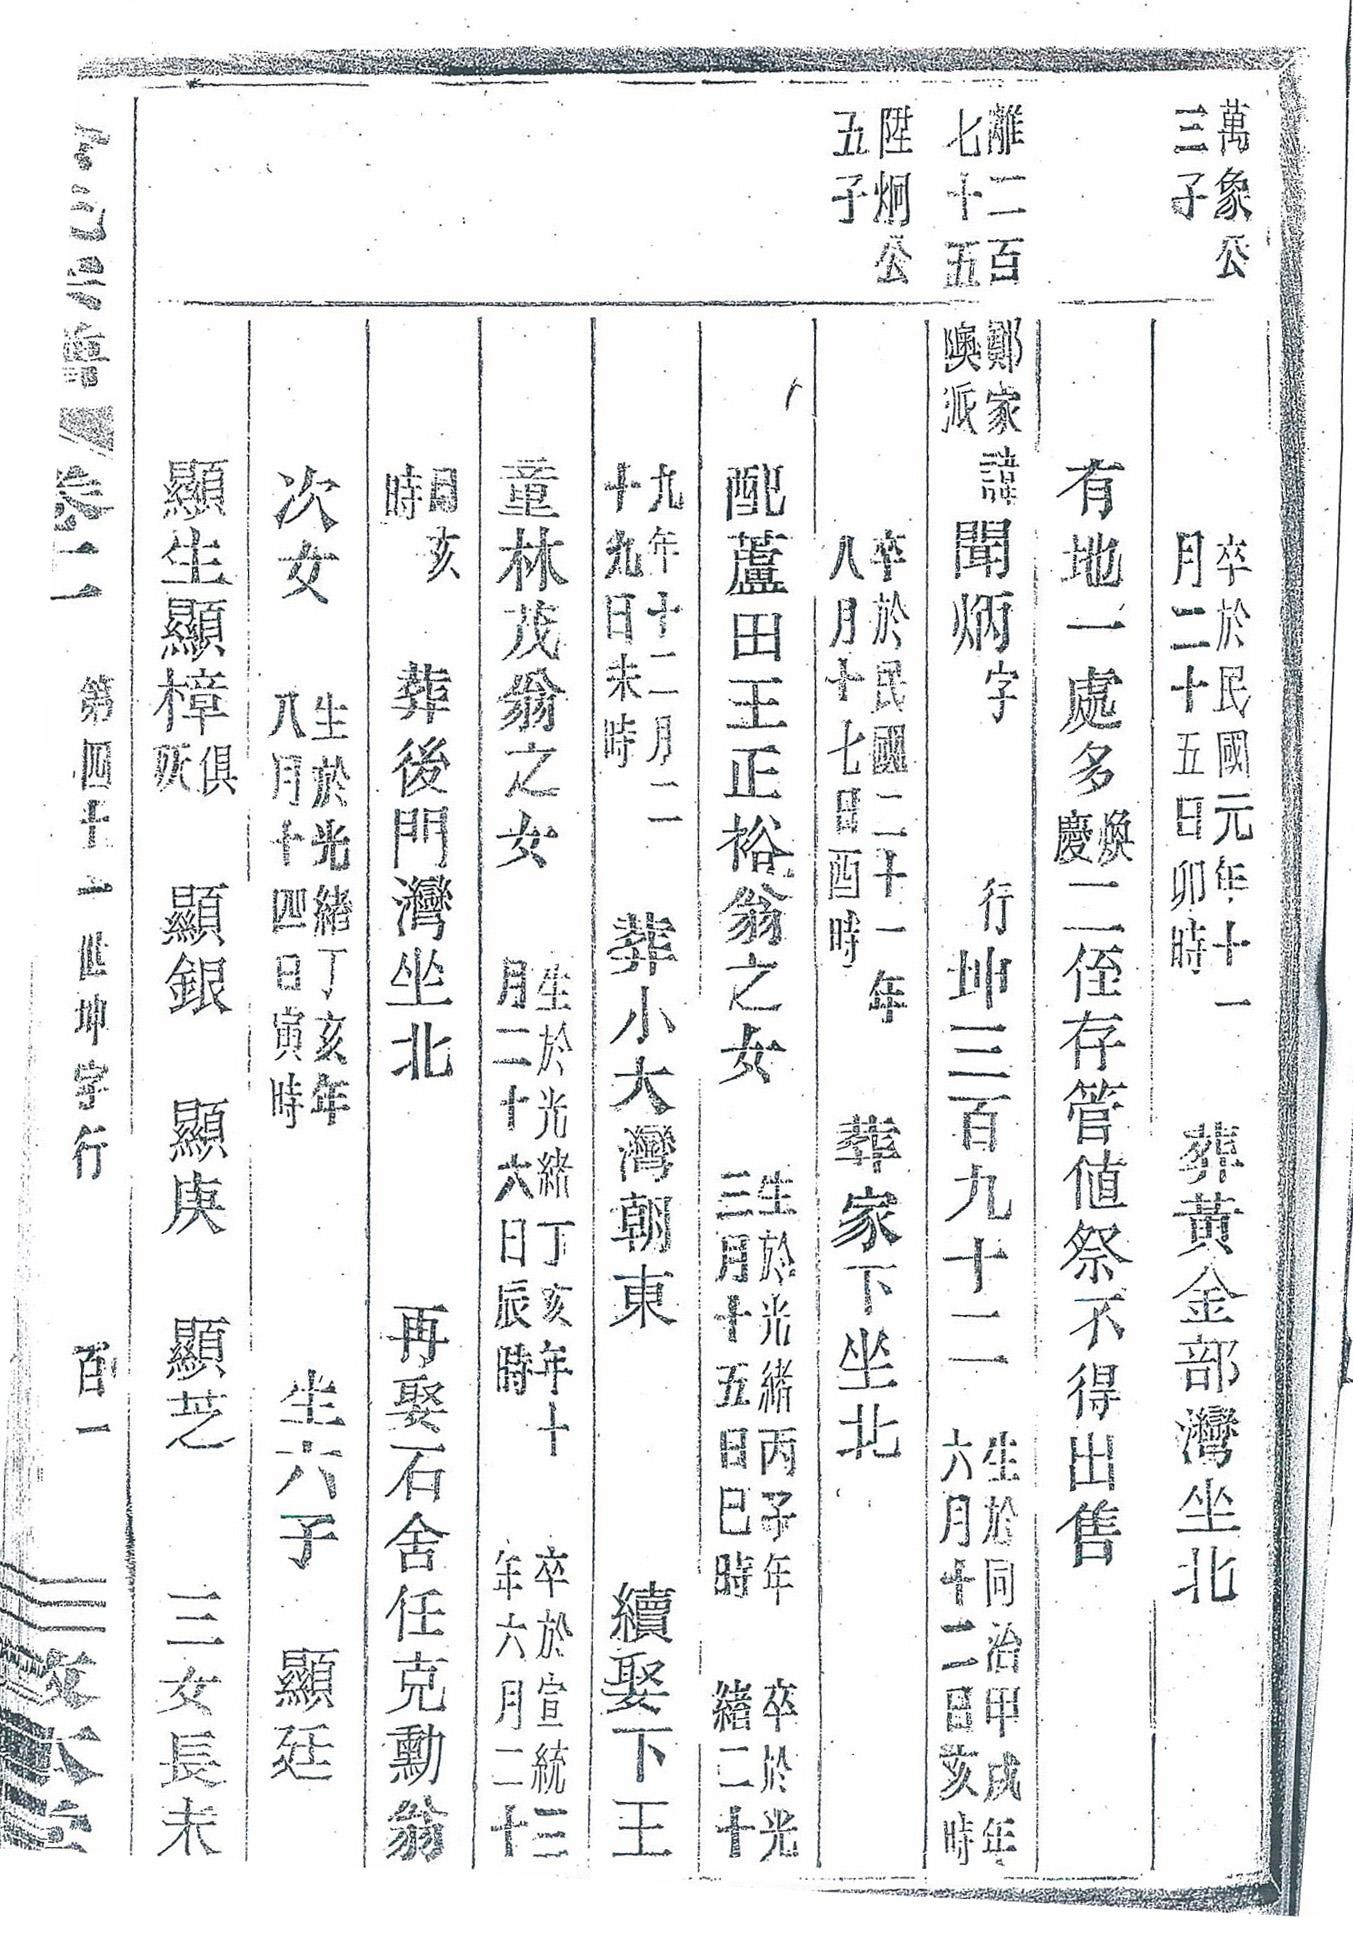 萬象公
三子
卒於民國元年十一
月二十五日卯時
葬黃金部灣坐北
有地一處多煥慶二侄存管值祭不得出售
離二百
七十五
鄭家
隩派
諱聞炳字 行坤三百九十二
生於同治甲戌年
六月十二日亥時
陞炯公
五子
卒於民國二十一年
八月十七日酉時
葬家下坐北
配蘆田王正裕翁之女
生於光緒丙子年
三月十五日巳時
卒於光
緒二十
九年十二月二
十九日未時
葬小大灣朝東 續娶下王
童林茂翁之女
生於光緒丁亥年十
月二十六日辰時
卒於宣統三
年六月二十
日亥
時
葬後門灣坐北 再娶石舍任克勳翁
次女
生於光緒丁亥年
八月十四日寅時
生六子 顯廷
顯生顯樟俱殀 顯銀 顯庚 顯芝 三女長未
卷二 第四十一世坤字行 百一